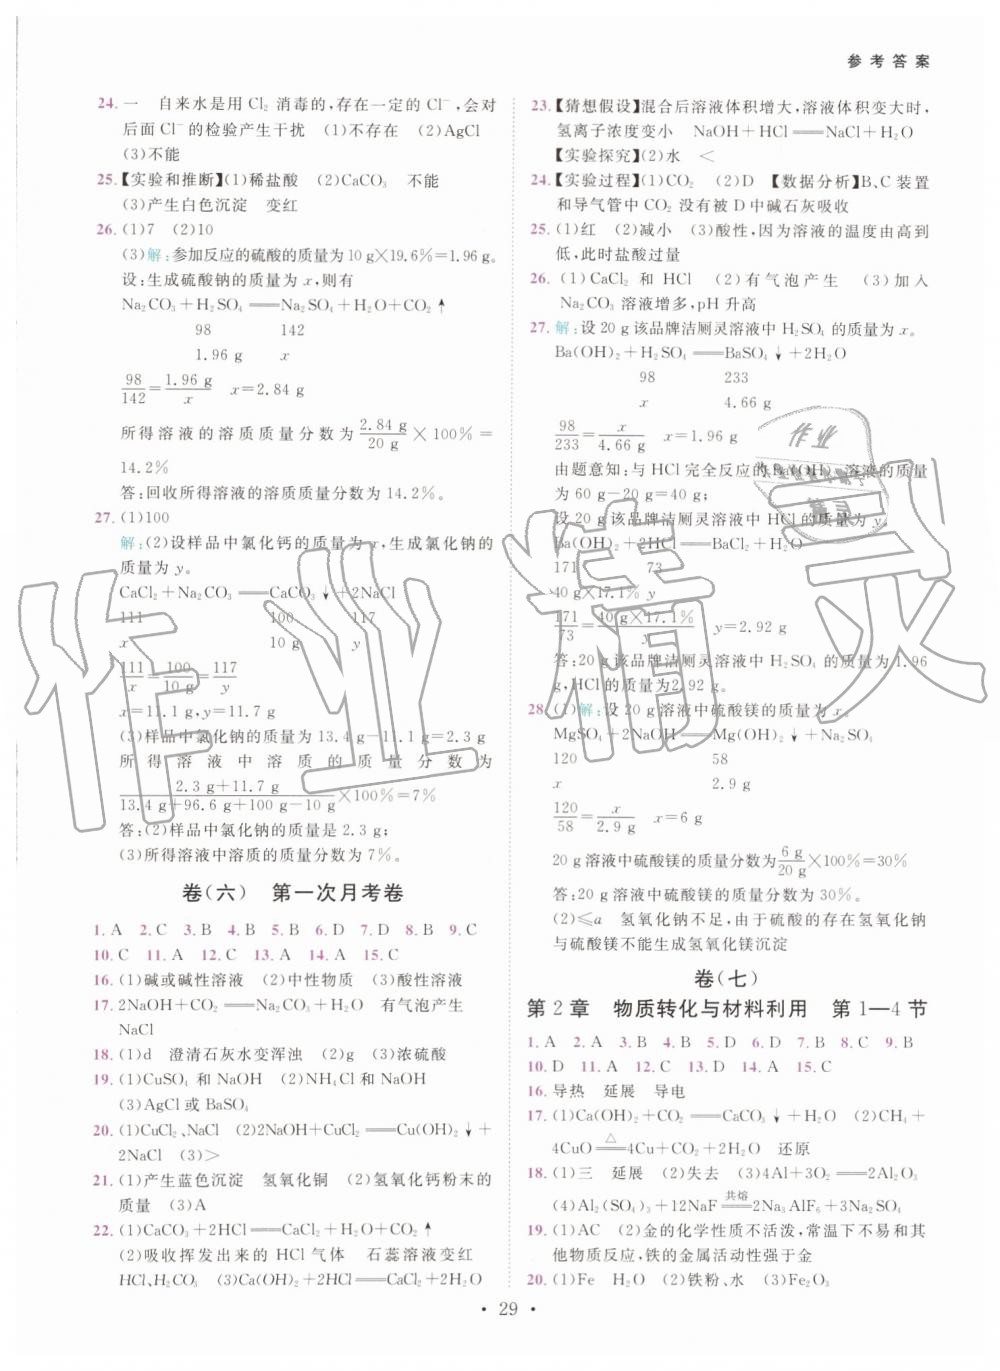 参考答案
24. 一 自来水是用 Cl₂ 消毒的,存在一定的 Cl⁻,会对
后面 Cl⁻的检验产生干扰 (1)不存在 (2)AgCl
(3)不能
25.【实验和推断】(1)稀盐酸 (2)CaCO₃ 不能
(3)产生白色沉淀 变红
26. (1)7 (2)10
(3)解:参加反应的硫酸的质量为 10 g×19.6%=1.96 g。
设:生成硫酸钠的质量为 x,则有
Na₂CO₃+H₂SO₄══Na₂SO₄+H₂O+CO₂↑
98 142
1.96 g x
98/142=1.96 g/x x=2.84 g
所得溶液的溶质质量分数为 2.84 g/20 g×100%=
14.2%
答:回收所得溶液的溶质质量分数为 14.2%。
27. (1)100
解:(2)设样品中氯化钙的质量为 x,生成氯化钠的
质量为 y。
CaCl₂+Na₂CO₃══CaCO₃↓+2NaCl
111 100 117
x 10 g y
111/x=100/10 g=117/y
x=11.1 g,y=11.7 g
(3)样品中氯化钠的质量为 13.4 g-11.1 g=2.3 g
所得溶液中溶质的质量分数为
2.3 g+11.7 g/13.4 g+96.6 g+100 g-10 g×100%=7%
答:(2)样品中氯化钠的质量是 2.3 g;
(3)所得溶液中溶质的质量分数为 7%。
卷(六) 第一次月考卷
1. A 2. C 3. B 4. B 5. B 6. D 7. D 8. B 9. C
10. C 11. A 12. C 13. A 14. A 15. C
16. (1)碱或碱性溶液 (2)中性物质 (3)酸性溶液
17. 2NaOH+CO₂══Na₂CO₃+H₂O 有气泡产生
NaCl
18. (1)d 澄清石灰水变浑浊 (2)g (3)浓硫酸
19. (1)CuSO₄ 和 NaOH (2)NH₄Cl 和 NaOH
(3)AgCl 或 BaSO₄
20. (1)CuCl₂、NaCl (2)2NaOH+CuCl₂══Cu(OH)₂↓+
2NaCl (3)>
21. (1)产生蓝色沉淀 氢氧化铜 (2)氢氧化钙粉末的
质量 (3)A
22. (1)CaCO₃+2HCl══CaCl₂+H₂O+CO₂↑
(2)吸收挥发出来的 HCl 气体 石蕊溶液变红
HCl、H₂CO₃ (3)Ca(OH)₂+2HCl══CaCl₂+2H₂O
23.【猜想假设】混合后溶液体积增大,溶液体积变大时,
氢离子浓度变小 NaOH+HCl══NaCl+H₂O
【实验探究】(2)水 <
24.【实验过程】(1)CO₂ (2)D 【数据分析】B、C 装置
和导气管中 CO₂ 没有被 D 中碱石灰吸收
25. (1)红 (2)减小 (3)酸性,因为溶液的温度由高到
低,此时盐酸过量
26. (1)CaCl₂ 和 HCl (2)有气泡产生 (3)加入
Na₂CO₃ 溶液增多,pH 升高
27. 解:设 20 g 该品牌洁厕灵溶液中 H₂SO₄ 的质量为 x。
Ba(OH)₂+H₂SO₄══BaSO₄↓+2H₂O
98 233
x 4.66 g
98/233=x/4.66 g x=1.96 g
由题意知:与 HCl 完全反应的 Ba(OH)₂ 溶液的质量
为 60 g-20 g=40 g;
设 20 g 该品牌洁厕灵溶液中 HCl 的质量为 y。
Ba(OH)₂+2HCl══BaCl₂+2H₂O
171 73
40 g×17.1% y
171/73=40 g×17.1%/y y=2.92 g
答:20 g 该品牌洁厕灵溶液中 H₂SO₄ 的质量为 1.96
g,HCl 的质量为 2.92 g。
28. (1)解:设 20 g 溶液中硫酸镁的质量为 x。
MgSO₄+2NaOH══Mg(OH)₂↓+Na₂SO₄
120 58
x 2.9 g
120/58=x/2.9 g x=6 g
20 g 溶液中硫酸镁的质量分数为 6 g/20 g×100%=30%
答:20 g 溶液中硫酸镁的质量分数为 30%。
(2)≤a 氢氧化钠不足,由于硫酸的存在氢氧化钠
与硫酸镁不能生成氢氧化镁沉淀
卷(七)
第 2 章 物质转化与材料利用 第 1—4 节
1. A 2. A 3. B 4. B 5. D 6. B 7. B 8. C 9. B
10. D 11. A 12. A 13. D 14. A 15. C
16. 导热 延展 导电
17. (1)Ca(OH)₂+CO₂══CaCO₃↓+H₂O (2)CH₄+
4CuO═△═4Cu+CO₂+2H₂O 还原
18. (1)三 延展 (2)失去 (3)4Al+3O₂══2Al₂O₃
(4)Al₂(SO₄)₃+12NaF═共熔═2Na₃AlF₆+3Na₂SO₄
19. (1)AC (2)金的化学性质不活泼,常温下不易和其
他物质反应,铁的金属活动性强于金
20. (1)Fe H₂O (2)铁粉、水 (3)Fe₂O₃
• 29 •
作业精灵
作业